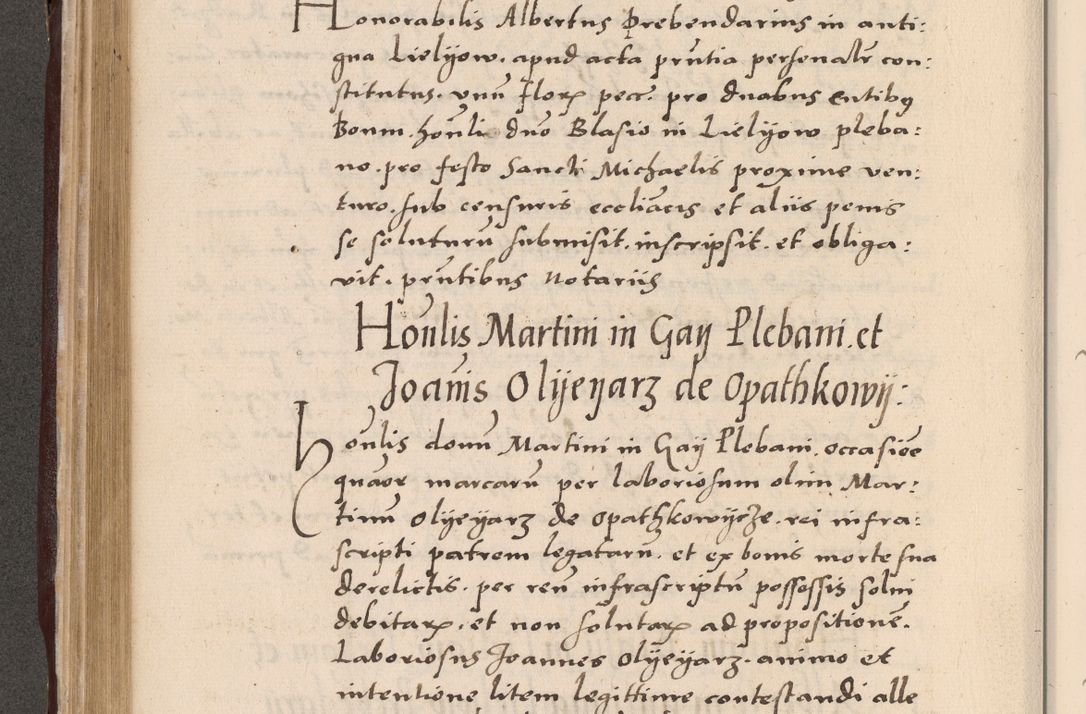 Honorabilis Albertus Prebendarius in anti:
qua Lielyow. apud acta pr̃ntia personalr̃ con:
stitutus. vnũ Florꝝ pecc̃. pro duabus entibꝰ
Boum. hoñli dño Blasio in Lielyow pleba:
no. pro festo Sancti Michaelis proxime ven:
turo. sub censuris eccliãcis et aliis penis
se soluturũ submisit. inscripsit. et obliga:
vit. pr̃ntibus Notariis
Hoñlis Martini in Gay Plebani. et
Joañis Olyeyarz de Opathkowij:
Hoñlis domñ Martini in Gay Plebani. occasiõe
quãor marcarũ per laboriosum olim Mar:
tinũ Olyeyarz de Opathkowycze. rei infra:
scripti patrem legatarũ. et ex bonis morte sua
derelictis. per reũ infrascriptũ possessis solui
debitarꝝ. et non solutarꝝ ad propositionẽ.
Laboriosus Joannes Olyeyarz. animo et
intentione litem legittime contestandi alle